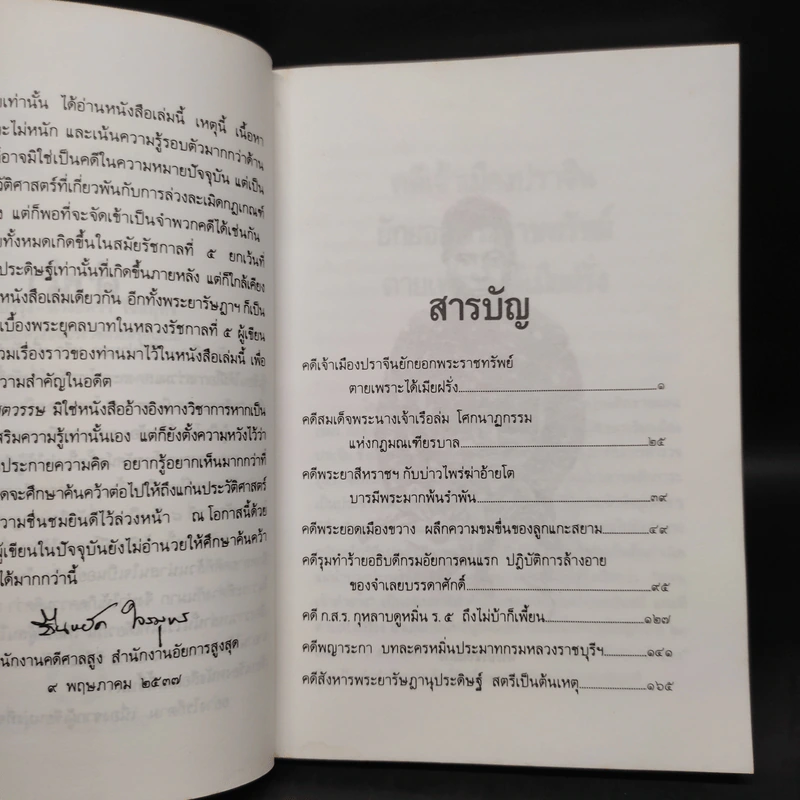 เท่านั้น ได้อ่านหนังสือเล่มนี้ เหตุนี้ เนื้อหา
ะไม่หนัก และเน้นความรู้รอบตัวมากกว่าด้าน
อาจมิใช่เป็นคดีในความหมายปัจจุบัน แต่เป็น
วัติศาสตร์ที่เกี่ยวพันกับการล่วงละเมิดกฎเกณฑ์
แต่ก็พอที่จะจัดเข้าเป็นจำพวกคดีได้เช่นกัน
ทั้งหมดเกิดขึ้นในสมัยรัชกาลที่ ๕ ยกเว้นที่
ประดิษฐ์เท่านั้นที่เกิดขึ้นภายหลัง แต่ก็ใกล้เคียง
หนังสือเล่มเดียวกัน อีกทั้งพระยารัษฎาฯ ก็เป็น
เบื้องพระยุคลบาทในหลวงรัชกาลที่ ๕ ผู้เขียน
วมเรื่องราวของท่านมาไว้ในหนังสือเล่มนี้ เพื่อ
ความสำคัญในอดีต
ศตวรรษ มิใช่หนังสืออ้างอิงทางวิชาการหากเป็น
สริมความรู้เท่านั้นเอง แต่ก็ยังตั้งความหวังไว้ว่า
ประกายความคิด อยากรู้อยากเห็นมากกว่าที่
ดจะศึกษาค้นคว้าต่อไปให้ถึงแก่นประวัติศาสตร์
วามชื่นชมยินดีไว้ล่วงหน้า ณ โอกาสนี้ด้วย
ผู้เขียนในปัจจุบันยังไม่อำนวยให้ศึกษาค้นคว้า
ได้มากกว่านี้
นักงานคดีศาลสูง สำนักงานอัยการสูงสุด
๙ พฤษภาคม ๒๕๓๗
สารบัญ
คดีเจ้าเมืองปราจีนยักยอกพระราชทรัพย์
ตายเพราะได้เมียฝรั่ง...๑
คดีสมเด็จพระนางเจ้าเรือล่ม โศกนาฏกรรม
แห่งกฎมณเฑียรบาล...๒๕
คดีพระยาสีหราชฯ กับบ่าวไพร่ฆ่าอ้ายโต
บารมีพระมากพ้นรำพัน...๓๙
คดีพระยอดเมืองขวาง ผลึกความขมขื่นของลูกแกะสยาม...๔๙
คดีรุมทำร้ายอธิบดีกรมอัยการคนแรก ปฏิบัติการล้างอาย
ของจำเลยบรรดาศักดิ์...๙๕
คดี ก.ส.ร. กุหลาบดูหมิ่น ร. ๕ ถึงไม่บ้าก็เพี้ยน...๑๒๗
คดีพญาระกา บทละครหมิ่นประมาทกรมหลวงราชบุรีฯ...๑๔๑
คดีสังหารพระยารัษฎานุประดิษฐ์ สตรีเป็นต้นเหตุ...๑๖๕